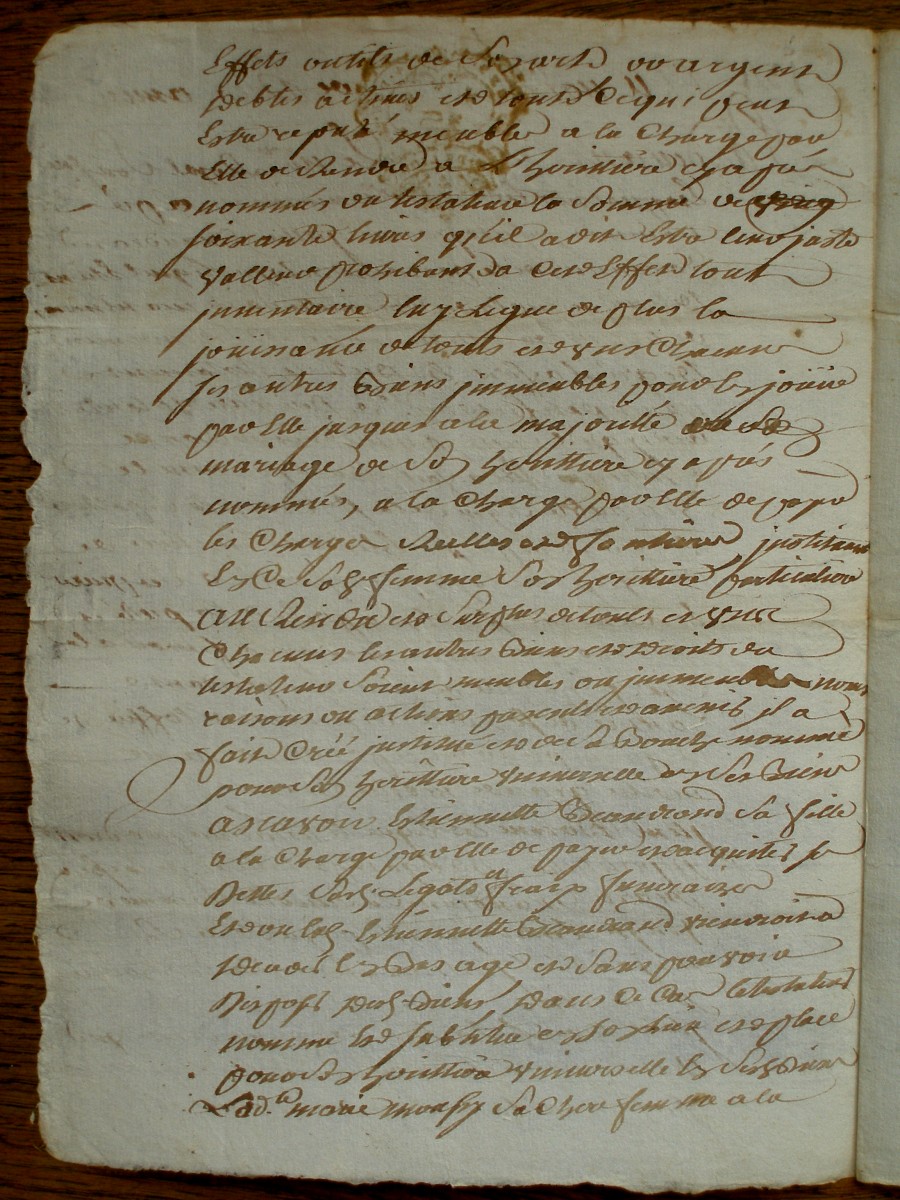 Effets outils de Sa part ou argent
debtes actives et tout Cequi peut
Estre reputé meuble a la Charge par
Elle de Rendre a L'heritiere cy apres
nommée du testateur la Somme de
soixante livres qu'il a dit Estre leur juste
valleur prohibant a Cet Effet tout
jnventaire luy Legue de plus la
joüissance de touts et vns Chacuns
ses autres Biens jmmeubles pour les joüir
par Elle jusques a la majorité
mariage de Sad heritiere cy apres
nommée, a la Charge par Elle de payer
les Charges Reelles et foncieres jnstituant
En Ce Sad femme Son heritiere particuliere
Et au Surplus de touts et vns
Chacuns les autres Biens et droits du
testateur Soient meubles ou jmmeubles noms
raisons ou actions presents et avenir il a
fait Créé jnstitué et de Sa Bouche nommé
pour Sad heritiere vniverselle En Ses Biens
ascavoir Estiennette Beaudrand Sa fille
a la Charge par Elle de payer et acquiter Se
Dettes Sesd Legats et fraix funeraires
Et ou lad Estiennette Beaudrand viendroit a
deceder En Bas age et Sans pouvoir
Disposer desd Biens dans Ce Cas le testateur
nomme et Substitue En Son Lieu et place
pour Sad heritiere vniverselle En Sesd Biens
Lad.te marie Sa Chere femme a la